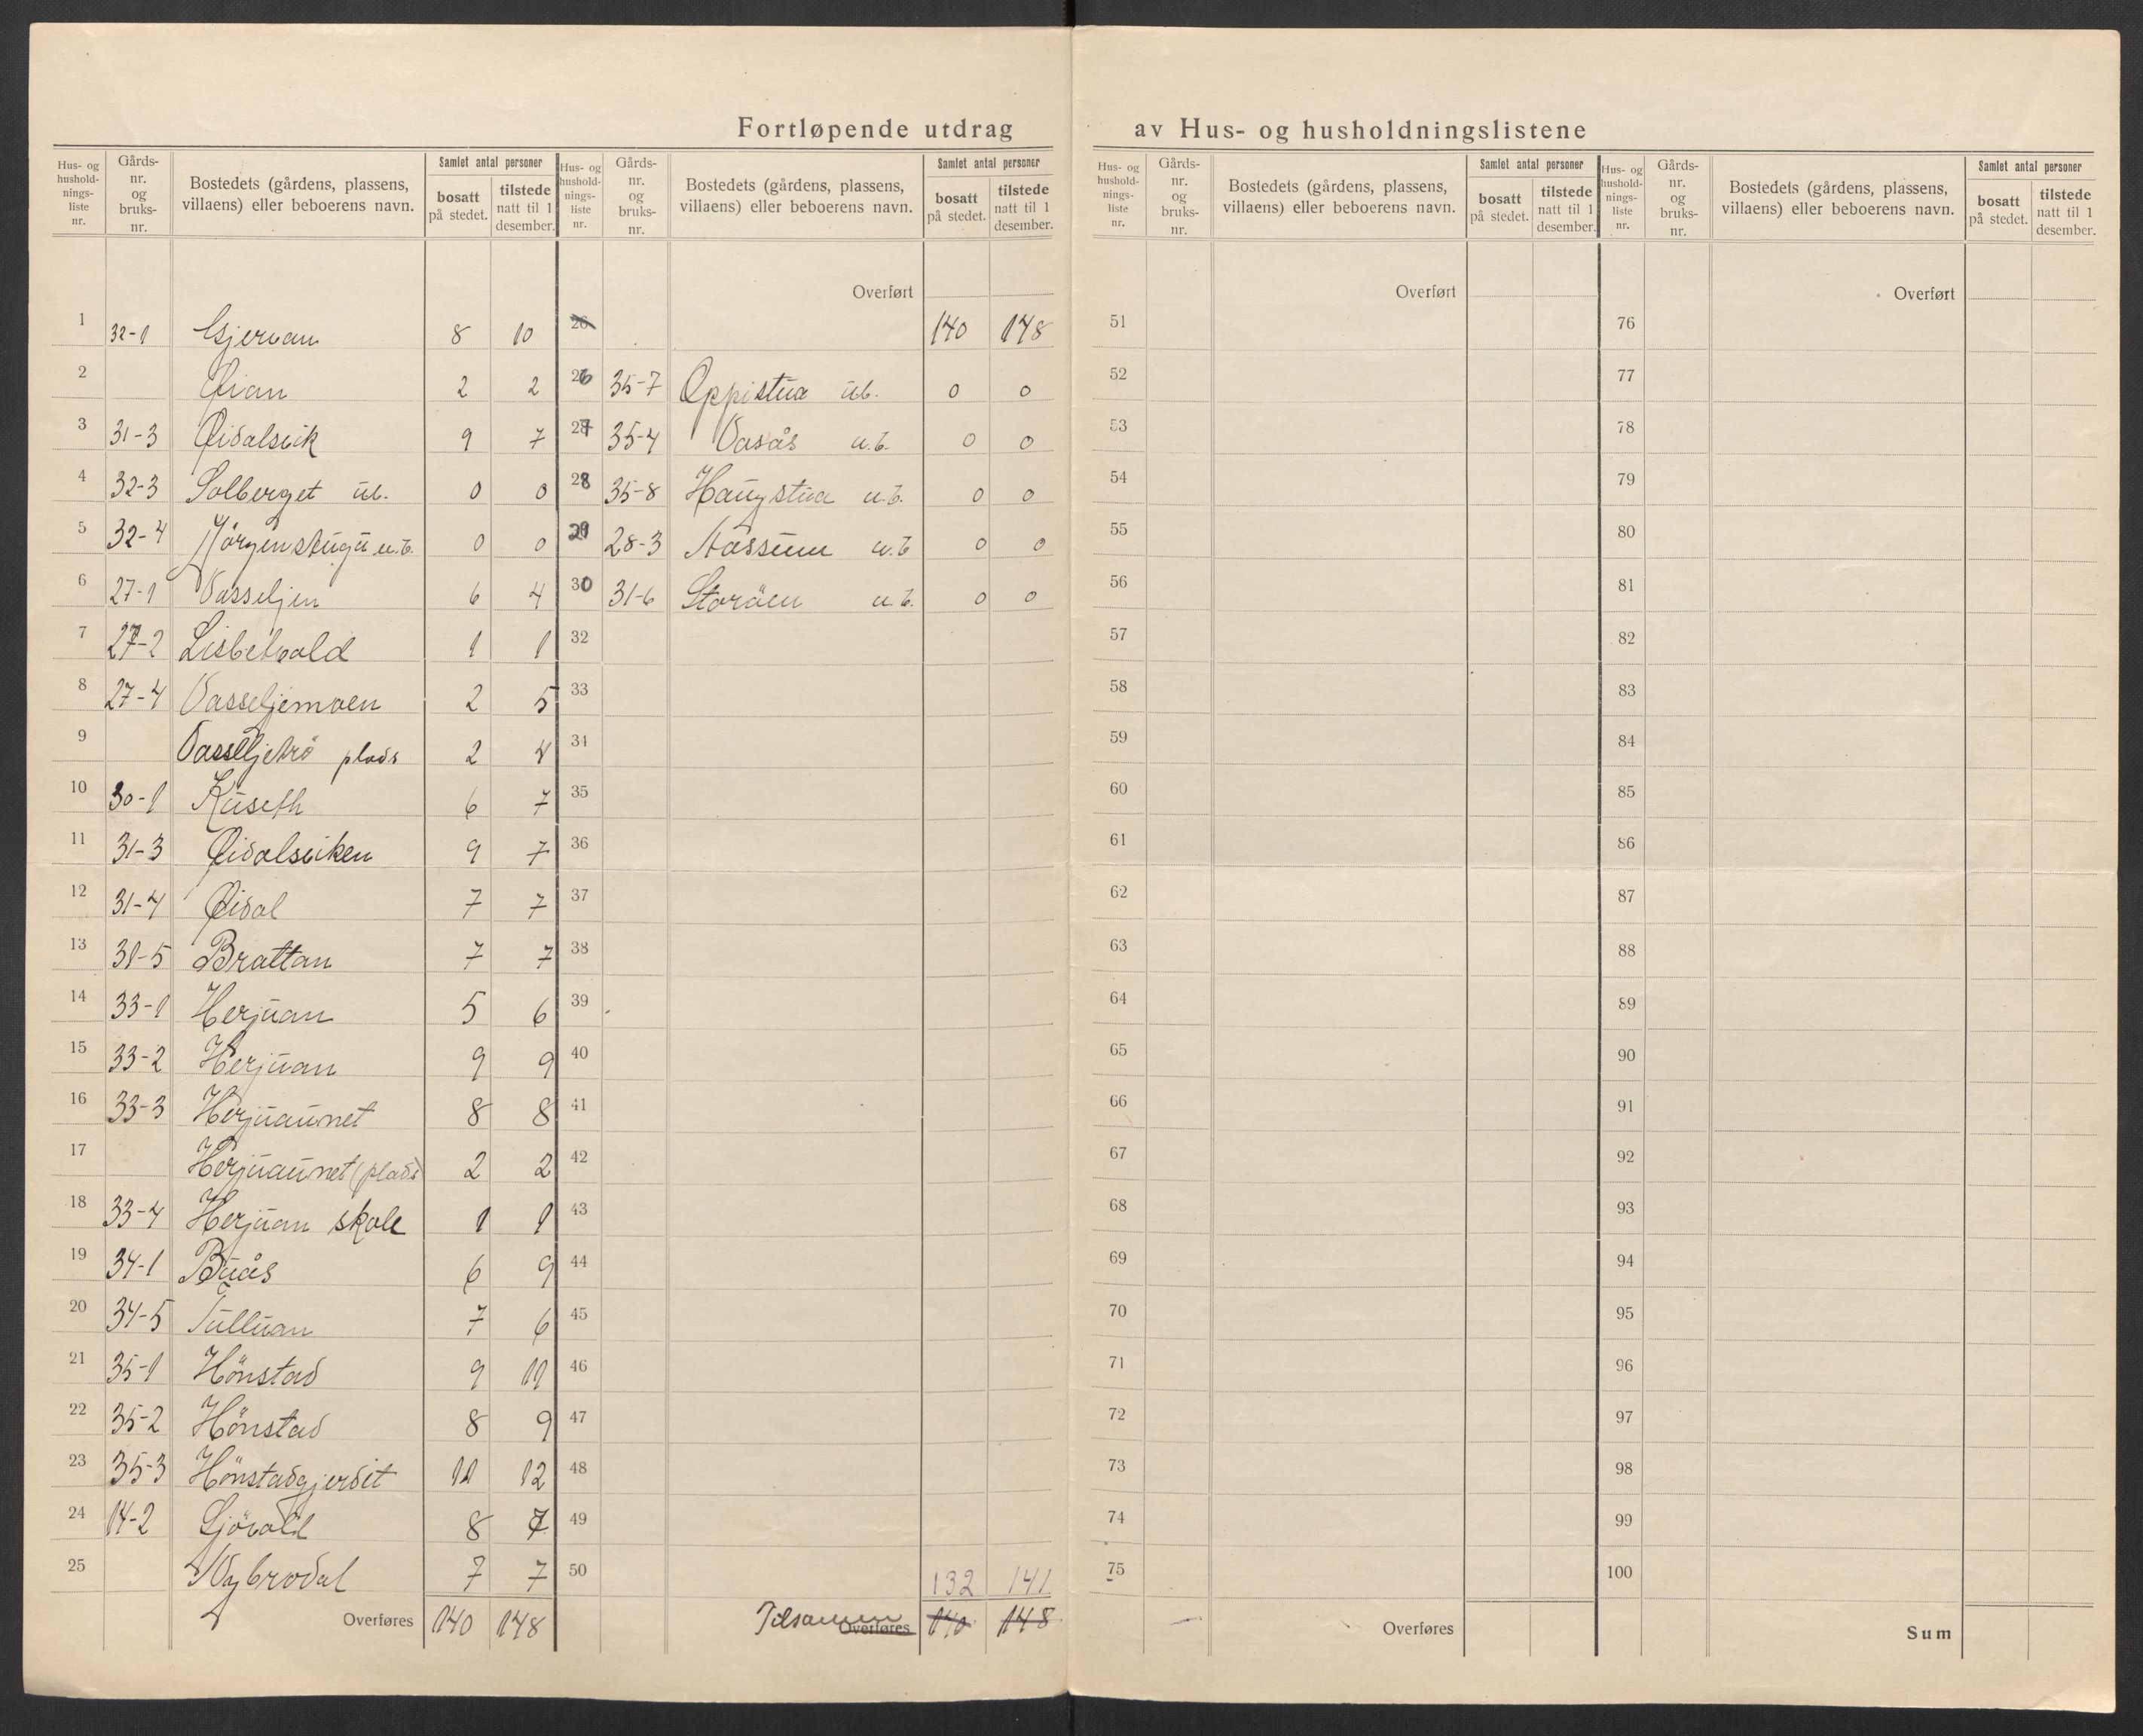 Fortløpende utdrag av Hus- og husholdningslistene
Hus- og hushold- nings- liste nr.
Gårds- nr. og bruks- nr.
Bostedets (gårdens, plassens, villaens) eller beboerens navn.
Samlet antal personer
bosatt på stedet.
tilstede natt til 1 desember.
1 32-1 Gjervan 8 10
2 Øian 2 2
3 31-3 Øidalsvik 9 7
4 32-3 Solberget ub. 0 0
5 32-4 Jörgenstugu u.b. 0 0
6 27-1 Vasseljen 6 4
7 27-2 Lisbetvold 1 1
8 27-4 Vasseljemoen 2 5
9 Vasseljetrö plads 2 4
10 30-1 Kuseth 6 7
11 31-3 Øidalsviken 9 7
12 31-4 Øidal 7 7
13 31-5 Brattan 7 7
14 33-1 Herjuan 5 6
15 33-2 Herjuan 9 9
16 33-3 Herjuaunet 8 8
17 Herjuaunet (plads) 2 2
18 33-4 Herjuan skole 1 1
19 34-1 Buås 6 9
20 34-5 Tulluan 7 6
21 35-1 Hönstad 9 11
22 35-2 Hönstad 8 9
23 35-3 Hönstadgjerdet 11 12
24 14-2 Sjövold 8 7
25 Nybrodal 7 7
Overføres 140 148
Hus- og hushold- nings- liste nr.
Gårds- nr. og bruks- nr.
Bostedets (gårdens, plassens, villaens) eller beboerens navn.
Samlet antal personer
bosatt på stedet.
tilstede natt til 1 desember.
Overført
26 140 148
26 35-7 Oppistua ub. 0 0
27 35-4 Vasås u.b. 0 0
28 35-8 Haugstua u.b. 0 0
29 28-3 Aassum u.b 0 0
30 31-6 Storöen u.b. 0 0
32
33
34
35
36
37
38
39
40
41
42
43
44
45
46
47
48
49
50 132 141
Tilsammen Overføres 140 148
Hus- og hushold- nings- liste nr.
Gårds- nr. og bruks- nr.
Bostedets (gårdens, plassens, villaens) eller beboerens navn.
Samlet antal personer
bosatt på stedet.
tilstede natt til 1 desember.
Overført
51
52
53
54
55
56
57
58
59
60
61
62
63
64
65
66
67
68
69
70
71
72
73
74
75
Overføres
Hus- og hushold- nings- liste nr.
Gårds- nr. og bruks- nr.
Bostedets (gårdens, plassens, villaens) eller beboerens navn.
Samlet antal personer
bosatt på stedet.
tilstede natt til 1 desember.
Overført
76
77
78
79
80
81
82
83
84
85
86
87
88
89
90
91
92
93
94
95
96
97
98
99
100
Sum